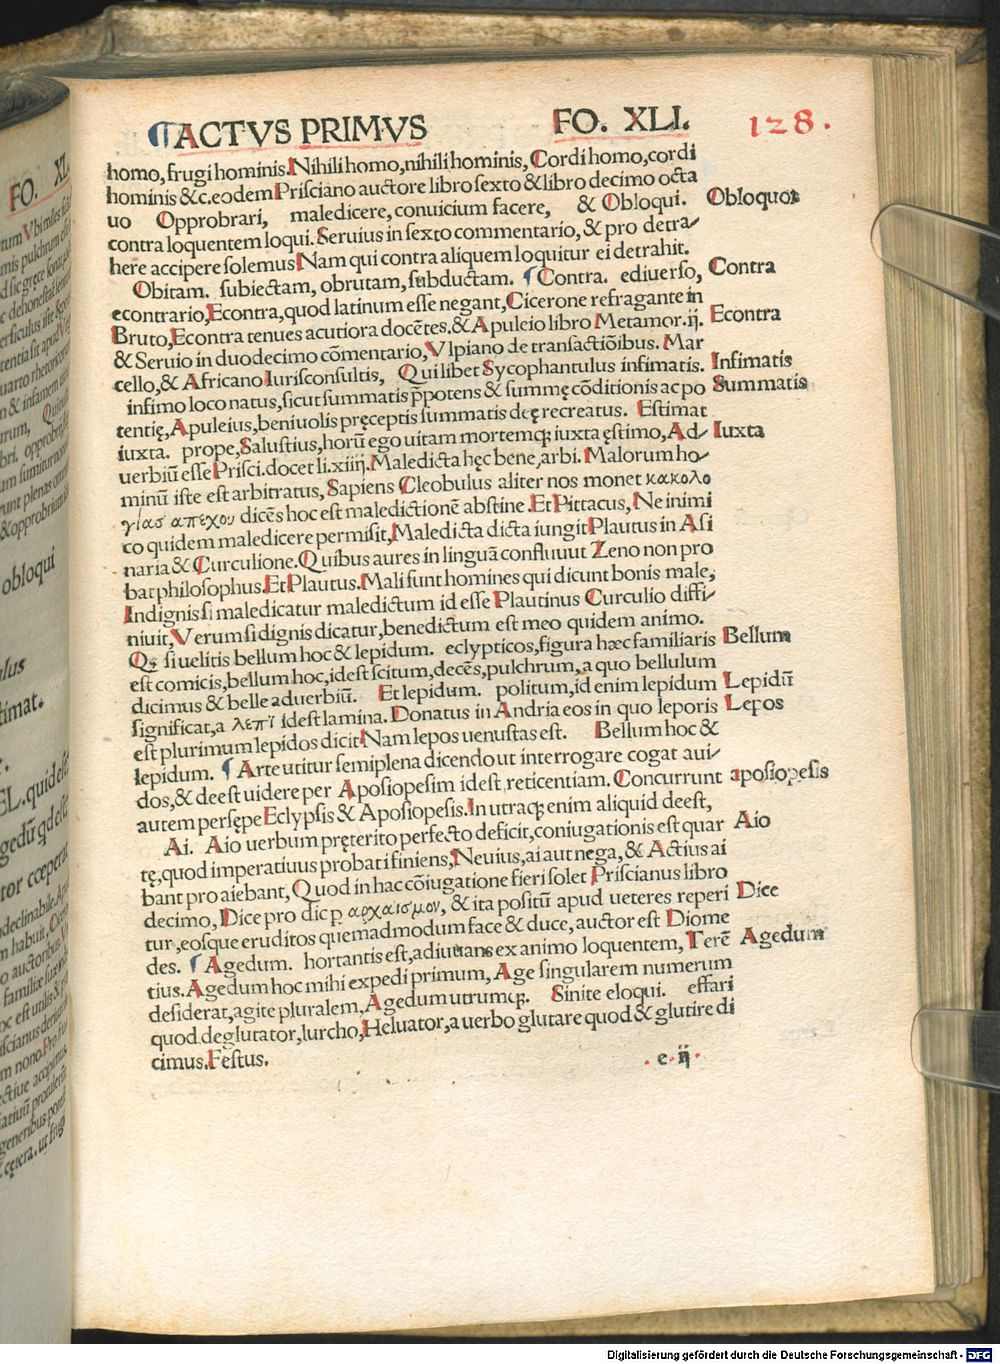 ¶ACTVS PRIMVS FO. XLI. 128.
homo, frugi hominis. Nihili homo, nihili hominis, Cordi homo, cordi
hominis & c. eodem Prisciano auctore libro sexto & libro decimo octa
uo Opprobrari, maledicere, conuicium facere, & Obloqui. Obloquor
contra loquentem loqui. Seruius in sexto commentario, & pro detra-
here accipere solemus Nam qui contra aliquem loquitur ei detrahit.
Obitam. subiectam, obrutam, subductam. ¶Contra. ediuerso, Contra
econtrario, Econtra, quod latinum esse negant, Cicerone refragante in
Bruto, Econtra tenues acutiora docētes, & Apuleio libro Metamor. ij. Econtra
& Seruio in duodecimo cōmentario, Vlpiano de transactiōibus. Mar
cello, & Africano Iurisconsultis, Quilibet Sycophantulus infimatis. Infimatis
infimo loco natus, sicut summatis p̄potens & summę cōditionis ac po Summatis
tentię, Apuleius, beniuolis pręceptis summatis deę recreatus. Estimat
iuxta. prope, Salustius, horū ego uitam mortemq; iuxta ęstimo, Ad- Iuxta
uerbiū esse Prisci. docet li. xiiij. Maledicta hęc bene, arbi. Malorum ho-
minū iste est arbitratus, Sapiens Cleobulus aliter nos monet κακολο
γίασ απεχου dicēs hoc est maledictionē abstine. Et Pittacus, Ne inimi
co quidem maledicere permisit, Maledicta dicta iungit Plautus in Asi
naria & Curculione. Quibus aures in linguā confluuut Zeno non pro
bat philosophus. Et Plautus. Mali sunt homines qui dicunt bonis male,
Indignis si maledicatur maledictum id esse Plautinus Curculio diffi-
niuit, Verum si dignis dicatur, benedictum est meo quidem animo.
si uelitis bellum hoc & lepidum. eclypticos, figura hæc familiaris Bellum
est comicis, bellum hoc, idest scitum, decēs, pulchrum, a quo bellulum
dicimus & belle aduerbiū. Et lepidum. politum, id enim lepidum Lepidū
significat, a λεπὶ idest lamina. Donatus in Andria eos in quo leporis Lepos
est plurimum lepidos dicit Nam lepos uenustas est. Bellum hoc &
lepidum. ¶Arte utitur semiplena dicendo ut interrogare cogat aui-
dos, & deest uidere per Aposiopesim idest reticentiam. Concurrunt aposiopesis
autem persępe Eclypsis & Aposiopesis. In utraq; enim aliquid deest,
Ai. Aio uerbum pręterito perfecto deficit, coniugationis est quar Aio
tę, quod imperatiuus probat i finiens, Neuius, ai aut nega, & Actius ai
bant pro aiebant, Quod in hac cōiugatione fieri solet Priscianus libro
decimo, Dice pro dic p αρχαισμον, & ita positū apud ueteres reperi Dice
tur, eosque eruditos quemadmodum face & duce, auctor est Diome
des. ¶Agedum. hortantis est, adiuuans ex animo loquentem, Terē Agedum
tius. Agedum hoc mihi expedi primum, Age singularem numerum
desiderat, agite pluralem, Agedum utrumq;. Sinite eloqui. effari
quod deglutator, lurcho, Heluator, a uerbo glutare quod & glutire di
cimus. Festus. . e . ij .
FO. XL
obloqui
Digitalisierung gefördert durch die Deutsche Forschungsgemeinschaft - DFG